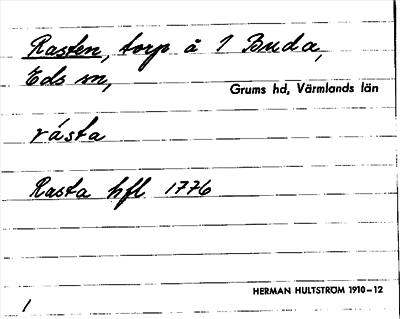 Rasten, torp å 1 Buda,
Eds sn,
Grums hd, Värmlands län
rásta
Rasta hfl 1776
HERMAN HULTSTRÖM 1910–12
1